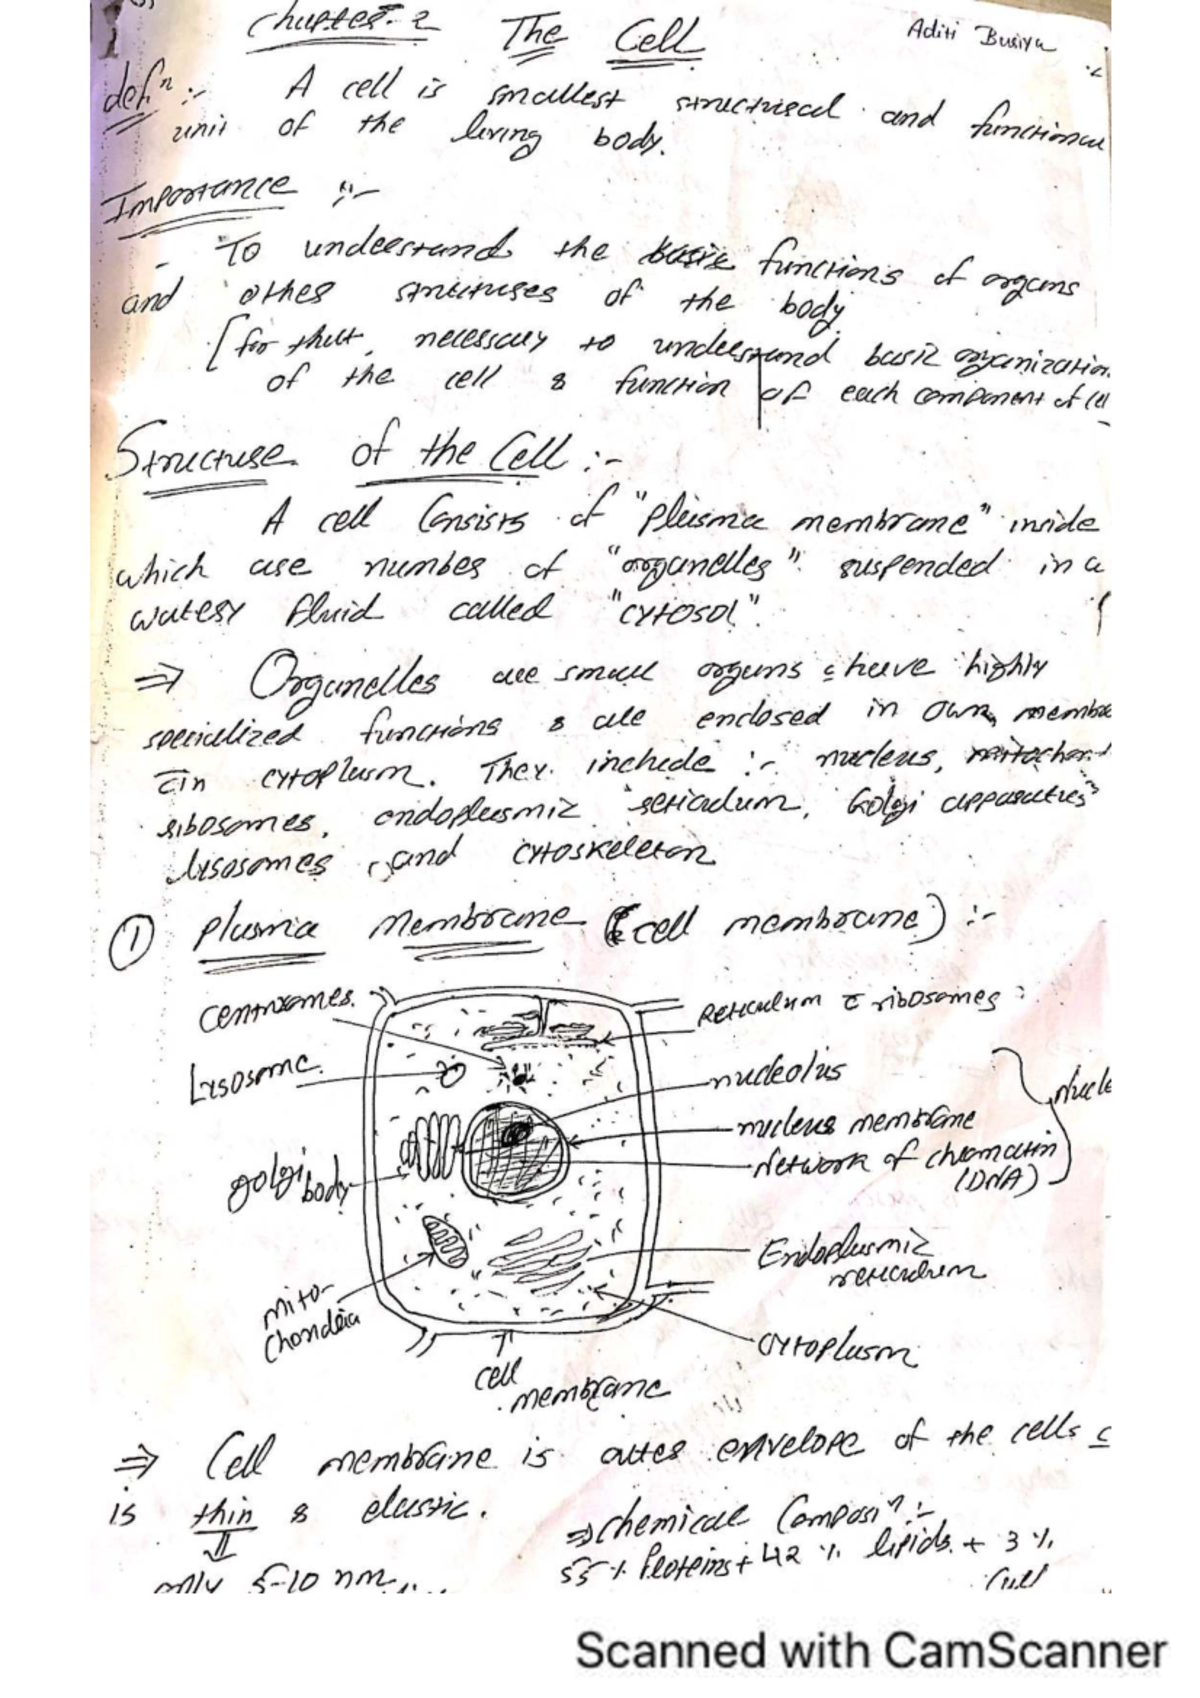 Chapter-2 The Cell
Aditi Busiya
defn :- A cell is smallest structural and functional
unit of the living body.
Importance :-
- To understand the basic functions of organs
and other structures of the body
[for that, necessary to understand basic organization
of the cell & function of each component of cel
Structure of the Cell :-
A cell Consists of "plasma membrane" inside
which are number of "organelles" suspended in a
watery fluid called "cytosol".
⇒ Organelles are small organs c have highly
specialized functions & are enclosed in own membra
in cytoplasm. They include :- nucleus,
ribosomes, endoplasmic reticulum, Golgi apparatus
lysosomes, and cytoskeleton
① Plasma Membrane (cell membrane) :-
Centrosomes.
Reticulum c ribosomes
Lysosome.
nucleolus
Nucle
nucleus membrane
Network of chromatin
(DNA)
golgi
body
Endoplasmic
reticulum
mito-
chondria
cytoplasm
cell
membrane
⇒ Cell membrane is outer envelope of the cells c
is thin & elastic.
⇒ chemical Composin :-
only 5-10 nm
55% Proteins + 42% lipids + 3%
Scanned with CamScanner